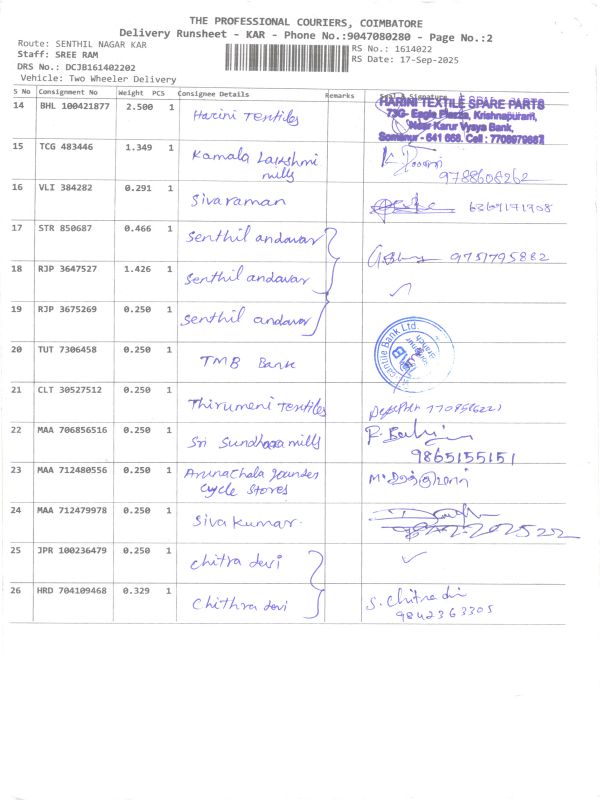 THE PROFESSIONAL COURIERS, COIMBATORE
Delivery Runsheet - KAR - Phone No.:9047080280 - Page No.:2
Route: SENTHIL NAGAR KAR
RS No.: 1614022
Staff: SREE RAM
RS Date: 17-Sep-2025
DRS No.: DCJB161402202
Vehicle: Two Wheeler Delivery
S No Consignment No Weight PCS Consignee Details Remarks Signature
14 BHL 100421877 2.500 1 Harini Textiles
HARINI TEXTILE SPARE PARTS
73G- Eagle Plazza, Krishnapuram,
Near Karur Vysya Bank,
Somanur - 641 668. Cell : 7708979887
15 TCG 483446 1.349 1 Kamala Lakshmi
mills
9788608262
16 VLI 384282 0.291 1 Sivaraman 6369191908
17 STR 850687 0.466 1 Senthil andavar 9751795882
18 RJP 3647527 1.426 1 Senthil andavar
19 RJP 3675269 0.250 1 Senthil andavar
20 TUT 7306458 0.250 1 TMB Bank
21 CLT 30527512 0.250 1 Thirumeni Textiles
22 MAA 706856516 0.250 1 Sri Sundhara mills
9865155151
23 MAA 712480556 0.250 1 Arunachala Jounder
cycle stores
24 MAA 712479978 0.250 1 Siva kumar.
25 JPR 100236479 0.250 1 chitra devi
26 HRD 704109468 0.329 1 Chithra devi S. Chitradevi
9842363305